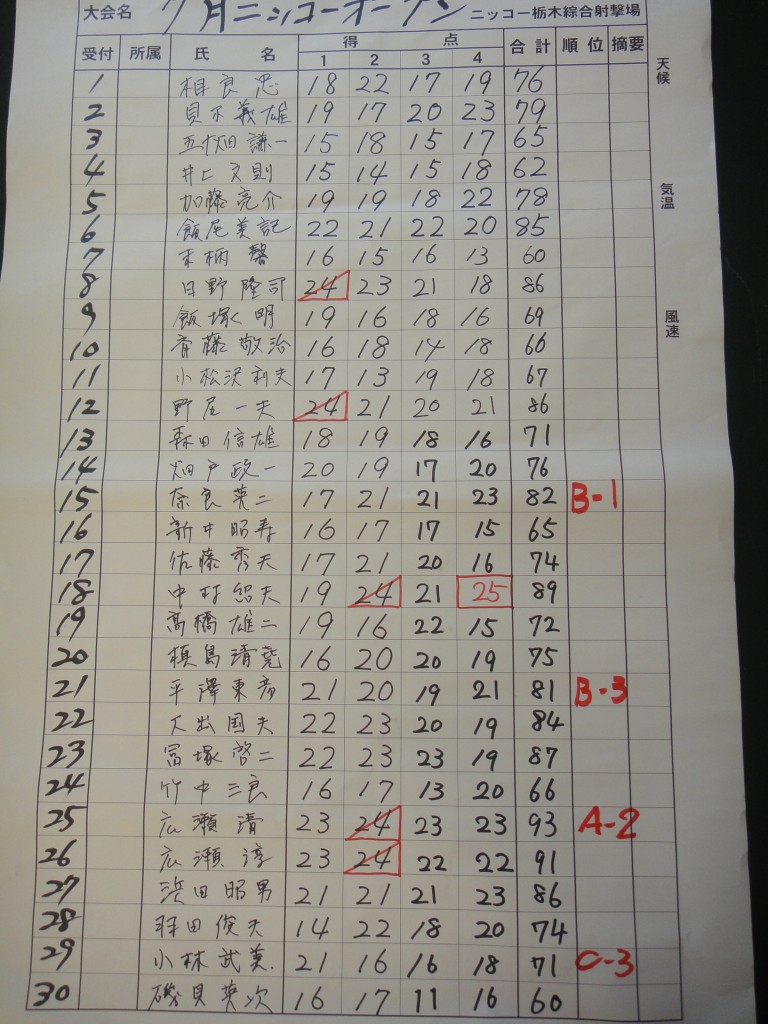 大会名 7月ニッコーオープン ニッコー栃木綜合射撃場
受付 所属 氏名 得点 1 2 3 4 合計 順位 摘要
天候
気温
風速
1 相良 忠 18 22 17 19 76
2 貝不義雄 19 17 20 23 79
3 五十畑謙一 15 18 15 17 65
4 井上文則 15 14 15 18 62
5 加藤亮介 19 19 18 22 78
6 飯尾美記 22 21 22 20 85
7 末柄 馨 16 15 16 13 60
8 日野隆司 24 23 21 18 86
9 飯塚 明 19 16 18 16 69
10 斉藤敬治 16 18 14 18 66
11 小松沢利夫 17 13 19 18 67
12 野尾一夫 24 21 20 21 86
13 森田信雄 18 19 18 16 71
14 畑戸政一 20 19 17 20 76
15 奈良英二 17 21 21 23 82 B-1
16 新井昭寿 16 17 17 15 65
17 佐藤秀夫 17 21 20 16 74
18 中村 夫 19 24 21 25 89
19 高橋雄二 19 16 22 15 72
20 槙島清尭 16 20 20 19 75
21 平澤東彦 21 20 19 21 81 B-3
22 大出国夫 22 23 20 19 84
23 冨塚啓二 22 23 23 19 87
24 竹中三良 16 17 13 20 66
25 広瀬 清 23 24 23 23 93 A-2
26 広瀬 淳 23 24 22 22 91
27 浜田昭男 21 21 21 23 86
28 羽田俊夫 14 22 18 20 74
29 小林武美 21 16 16 18 71 C-3
30 磯貝英次 16 17 11 16 60